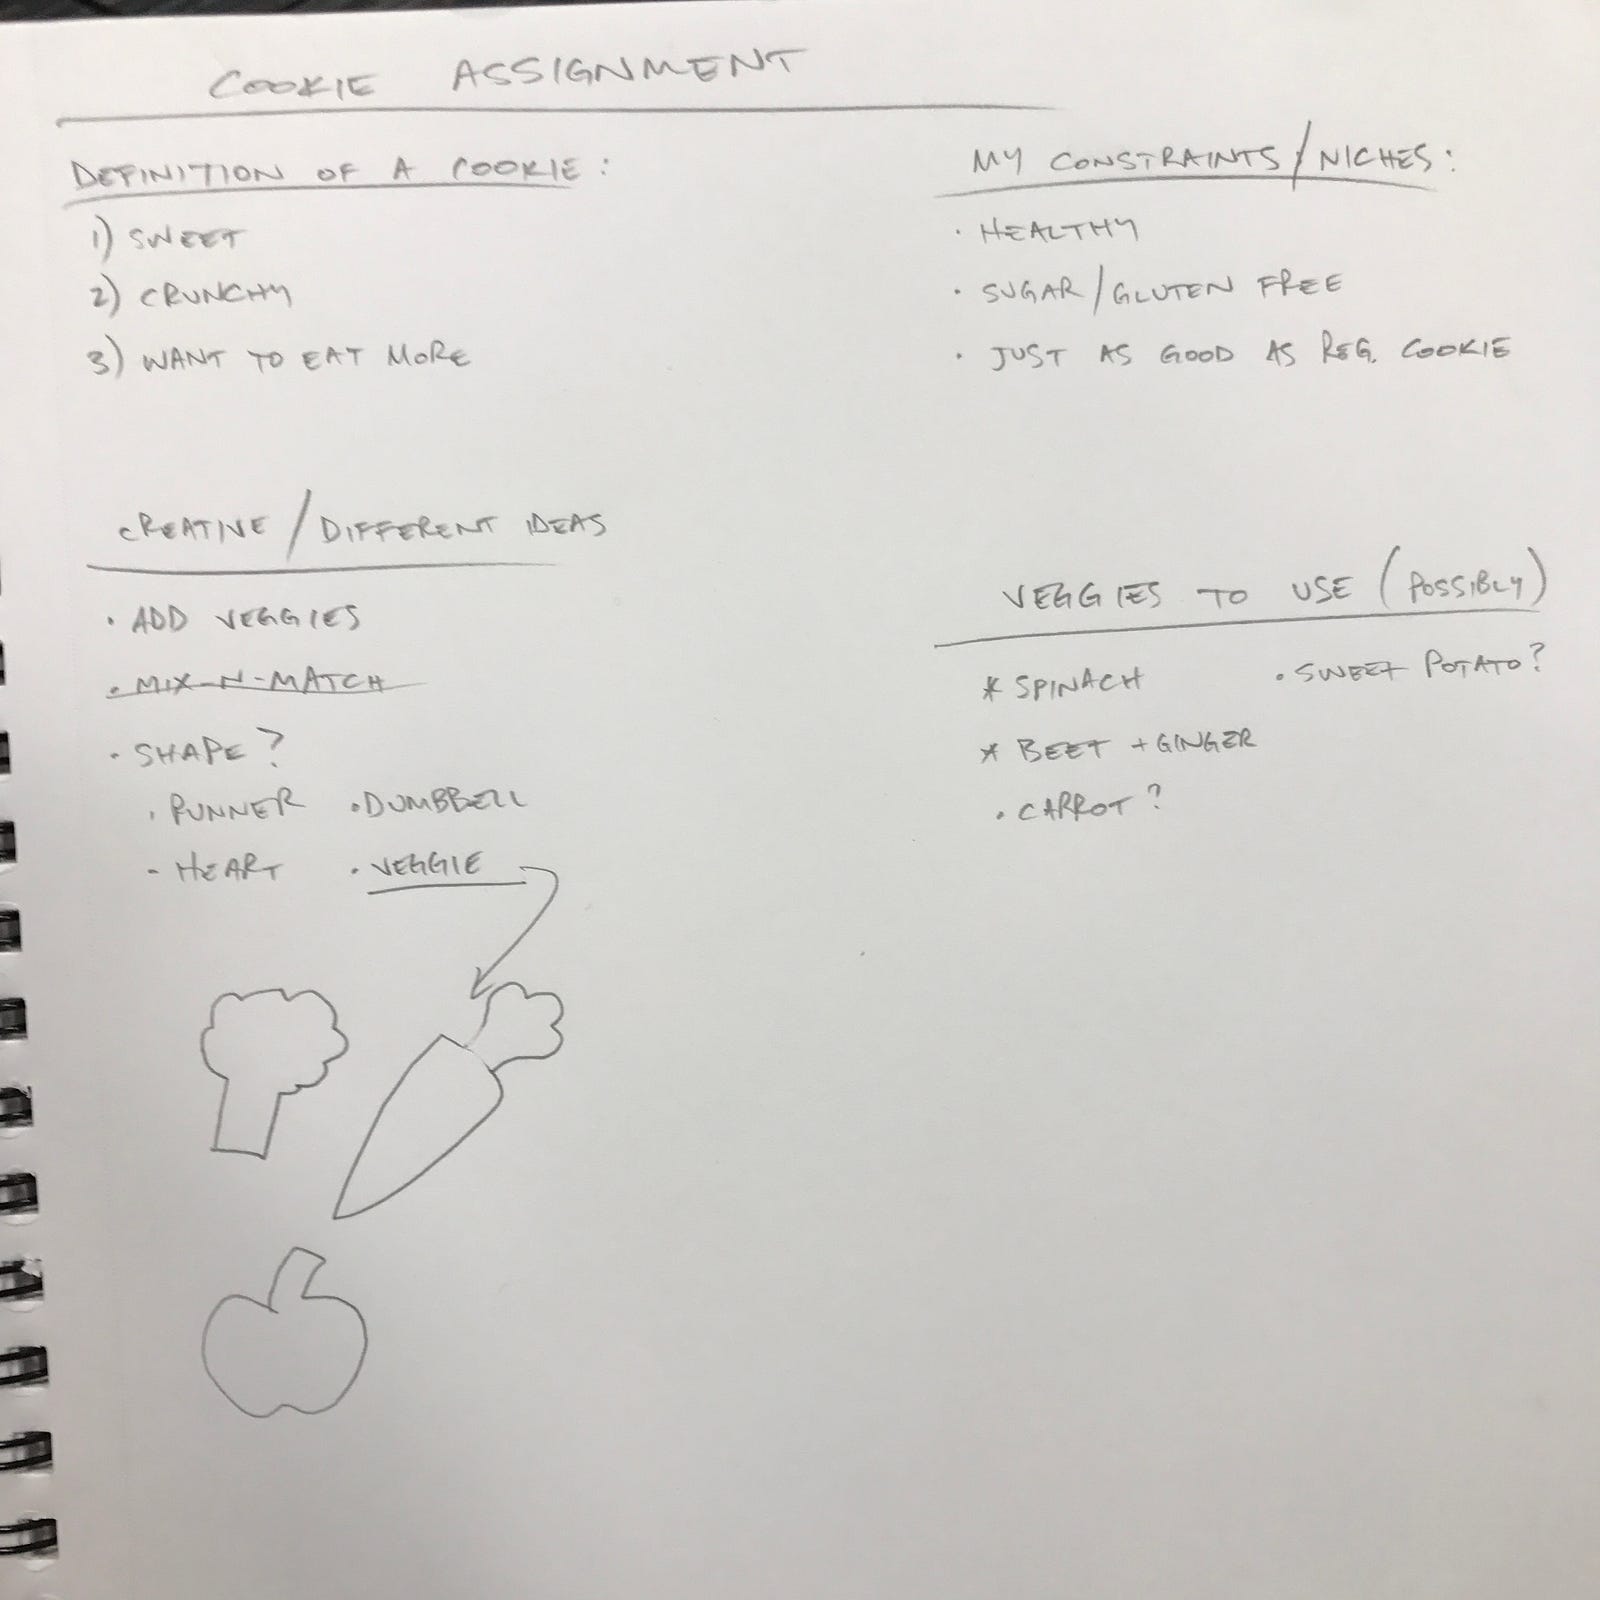 COOKIE ASSIGNMENT
DEFINITION OF A COOKIE:
1) SWEET
2) CRUNCHY
3) WANT TO EAT MORE
MY CONSTRAINTS/NICHES:
· HEALTHY
· SUGAR/GLUTEN FREE
· JUST AS GOOD AS REG. COOKIE
CREATIVE/DIFFERENT IDEAS
· ADD VEGGIES
· MIX-N-MATCH
· SHAPE?
· RUNNER · DUMBBELL
- HEART · VEGGIE
VEGGIES TO USE (POSSIBLY)
* SPINACH · SWEET POTATO?
* BEET + GINGER
· CARROT?